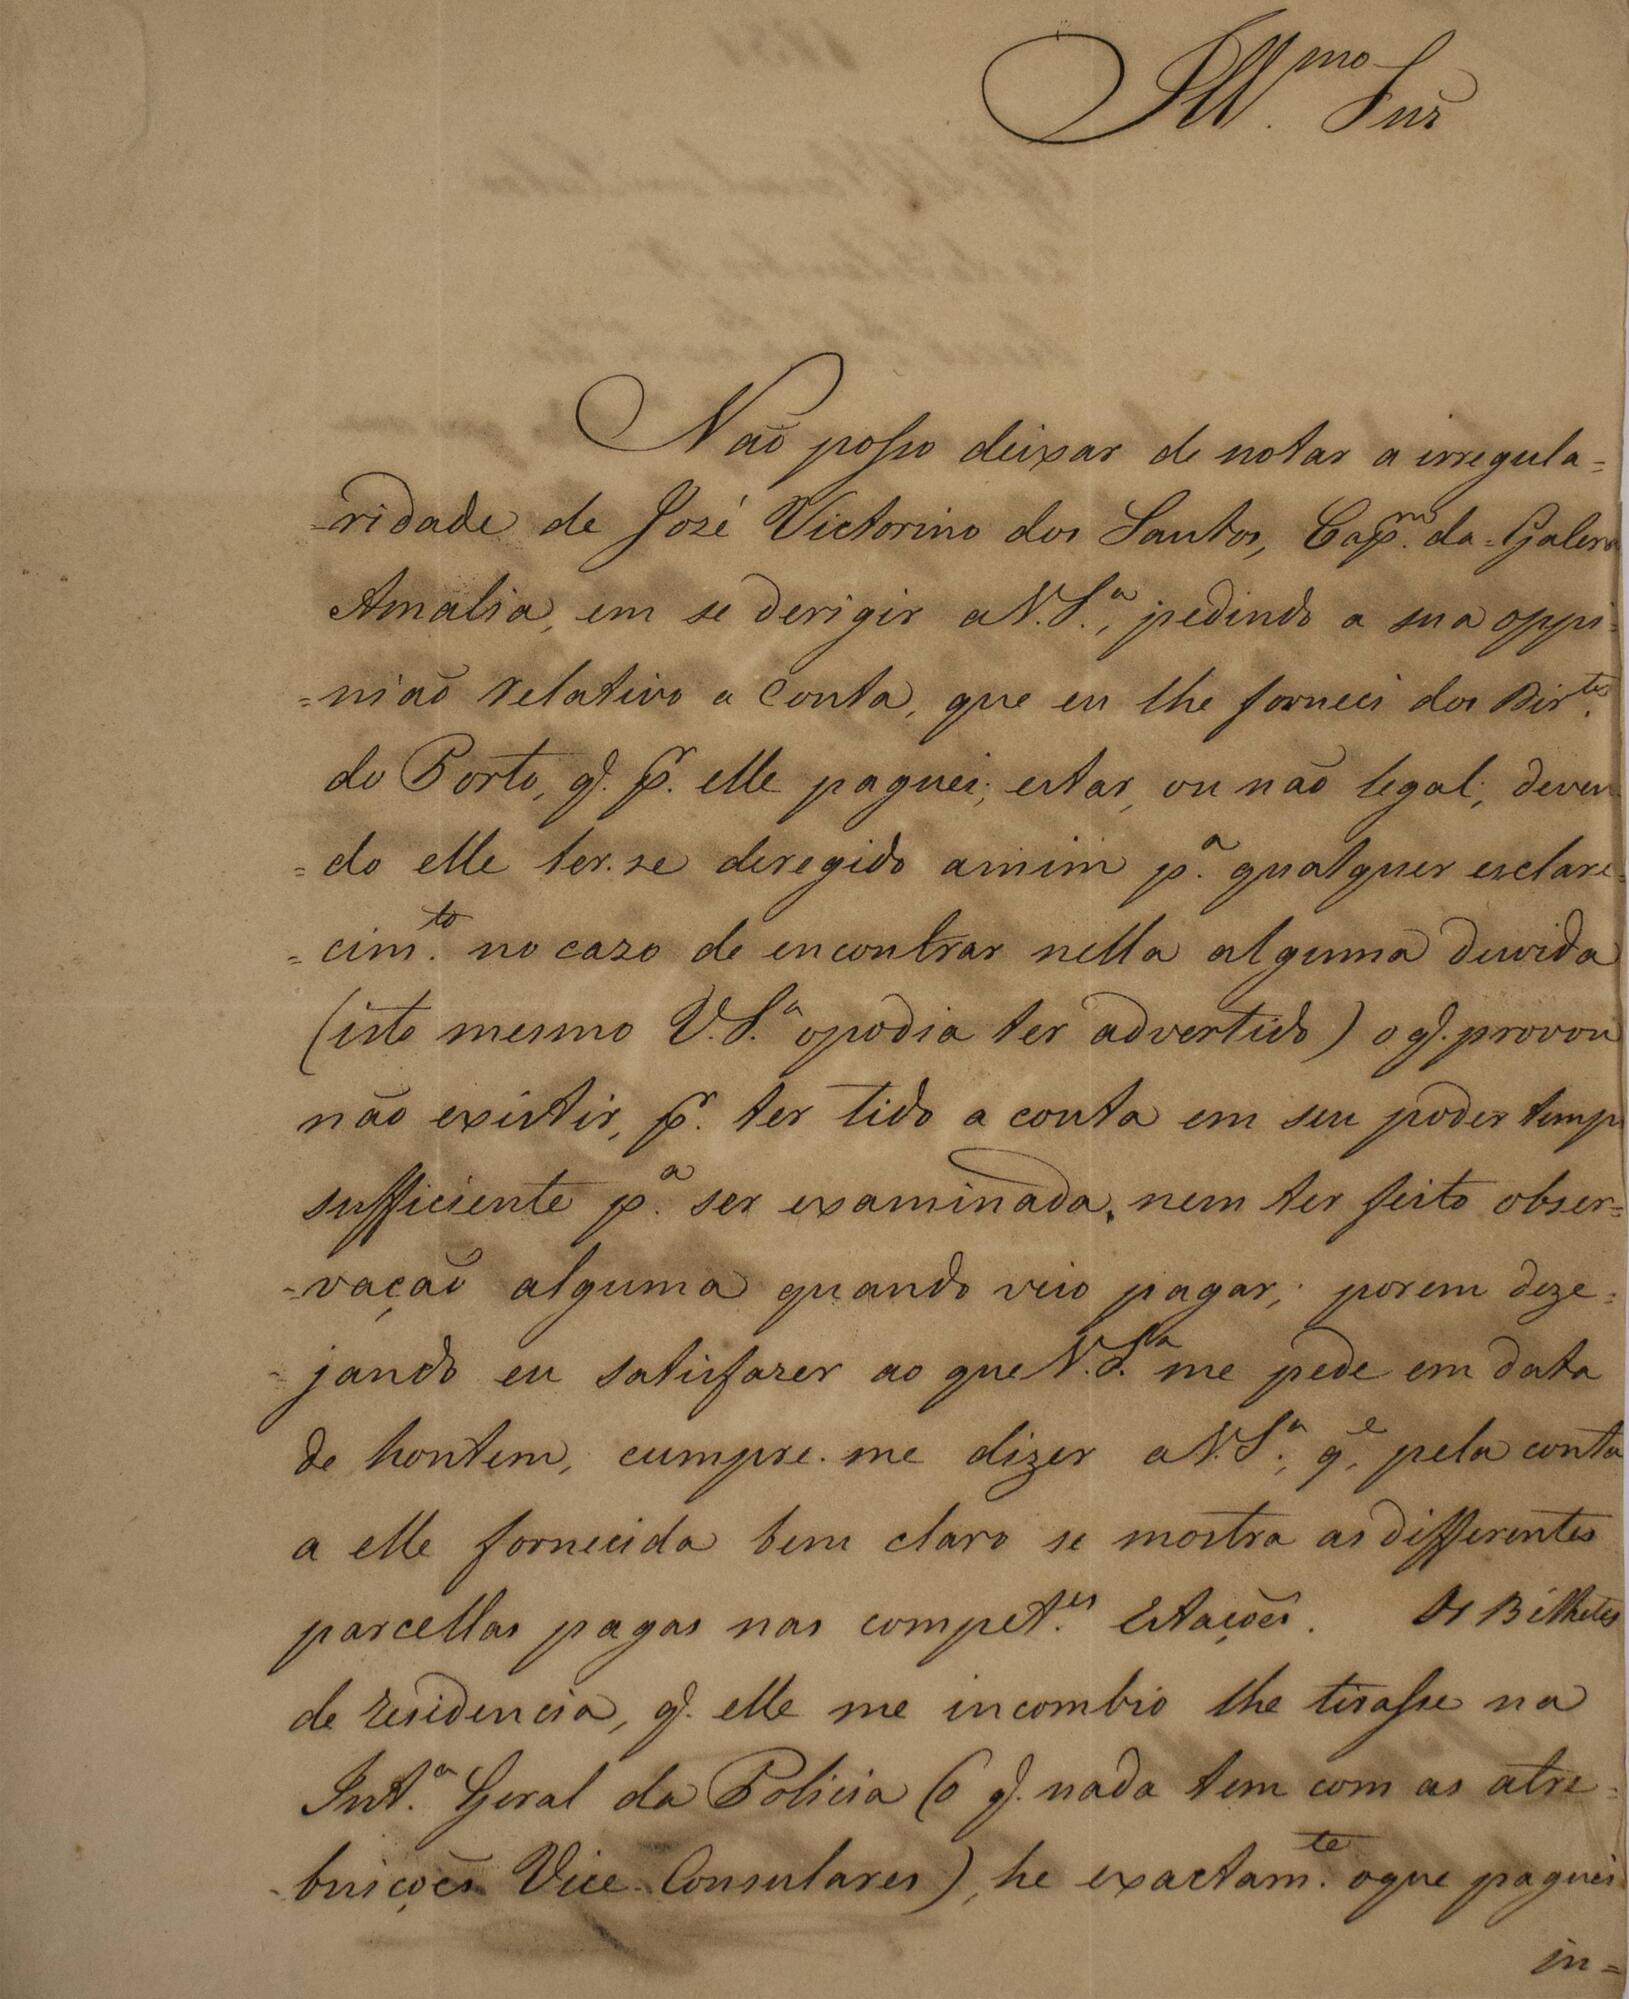 Ill.mo Snr̃
Não posso deixar de notar a irregula=
=ridade de José Victorino dos Santos, Cap.m da Galera
Amalia, em se derigir a V.S.ª, pedindo a sua oppi=
=nião relativo a Conta, que eu lhe forneci dos Dir.tos
do Porto, q. p.r elle paguei; estar, ou não legal; deven
=do elle ter-se deregido amim p.ª qualquer esclare=
=cim.to no cazo de encontrar nella alguma duvida
(isto mesmo V.S.ª opodia ter advertido) o q. provou
não existir, p.r ter tido a conta em seu poder tempo
sufficiente p.ª ser examinada, nem ter feito obser=
=vação alguma quando veio pagar; porem deze=
=jando eu satisfazer ao que V.S.ª me pede em data
de hontem, cumpre-me dizer a V.S.ª, q.e pela conta
a elle fornecida bem claro se mostra as differentes
parcellas pagas nas compet.es Estações. Os Bilhetes
de residencia, q. elle me incombio lhe tirasse na
Int.ª Geral da Policia (o q. nada tem com as atre=
=buições Vice-Consulares), he exactam.te oque paguei
in=